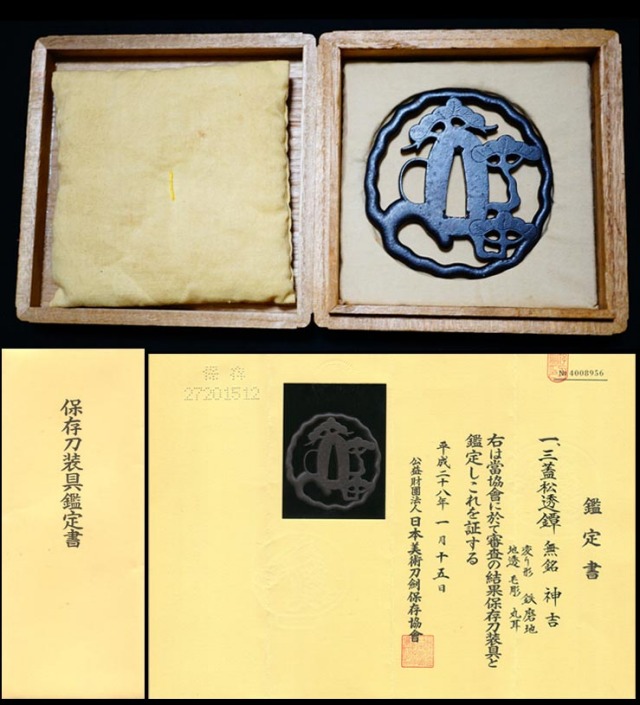 保存刀装具鑑定書
保存
27201512
№ 4008956
鑑定書
一、三蓋松透鐔 無銘 神吉
変り形 鉄磨地
地透 毛彫 丸耳
右は當協會に於て審査の結果保存刀装具と
鑑定しこれを証する
平成二十八年 一月十五日
公益財團法人 日本美術刀劍保存協會